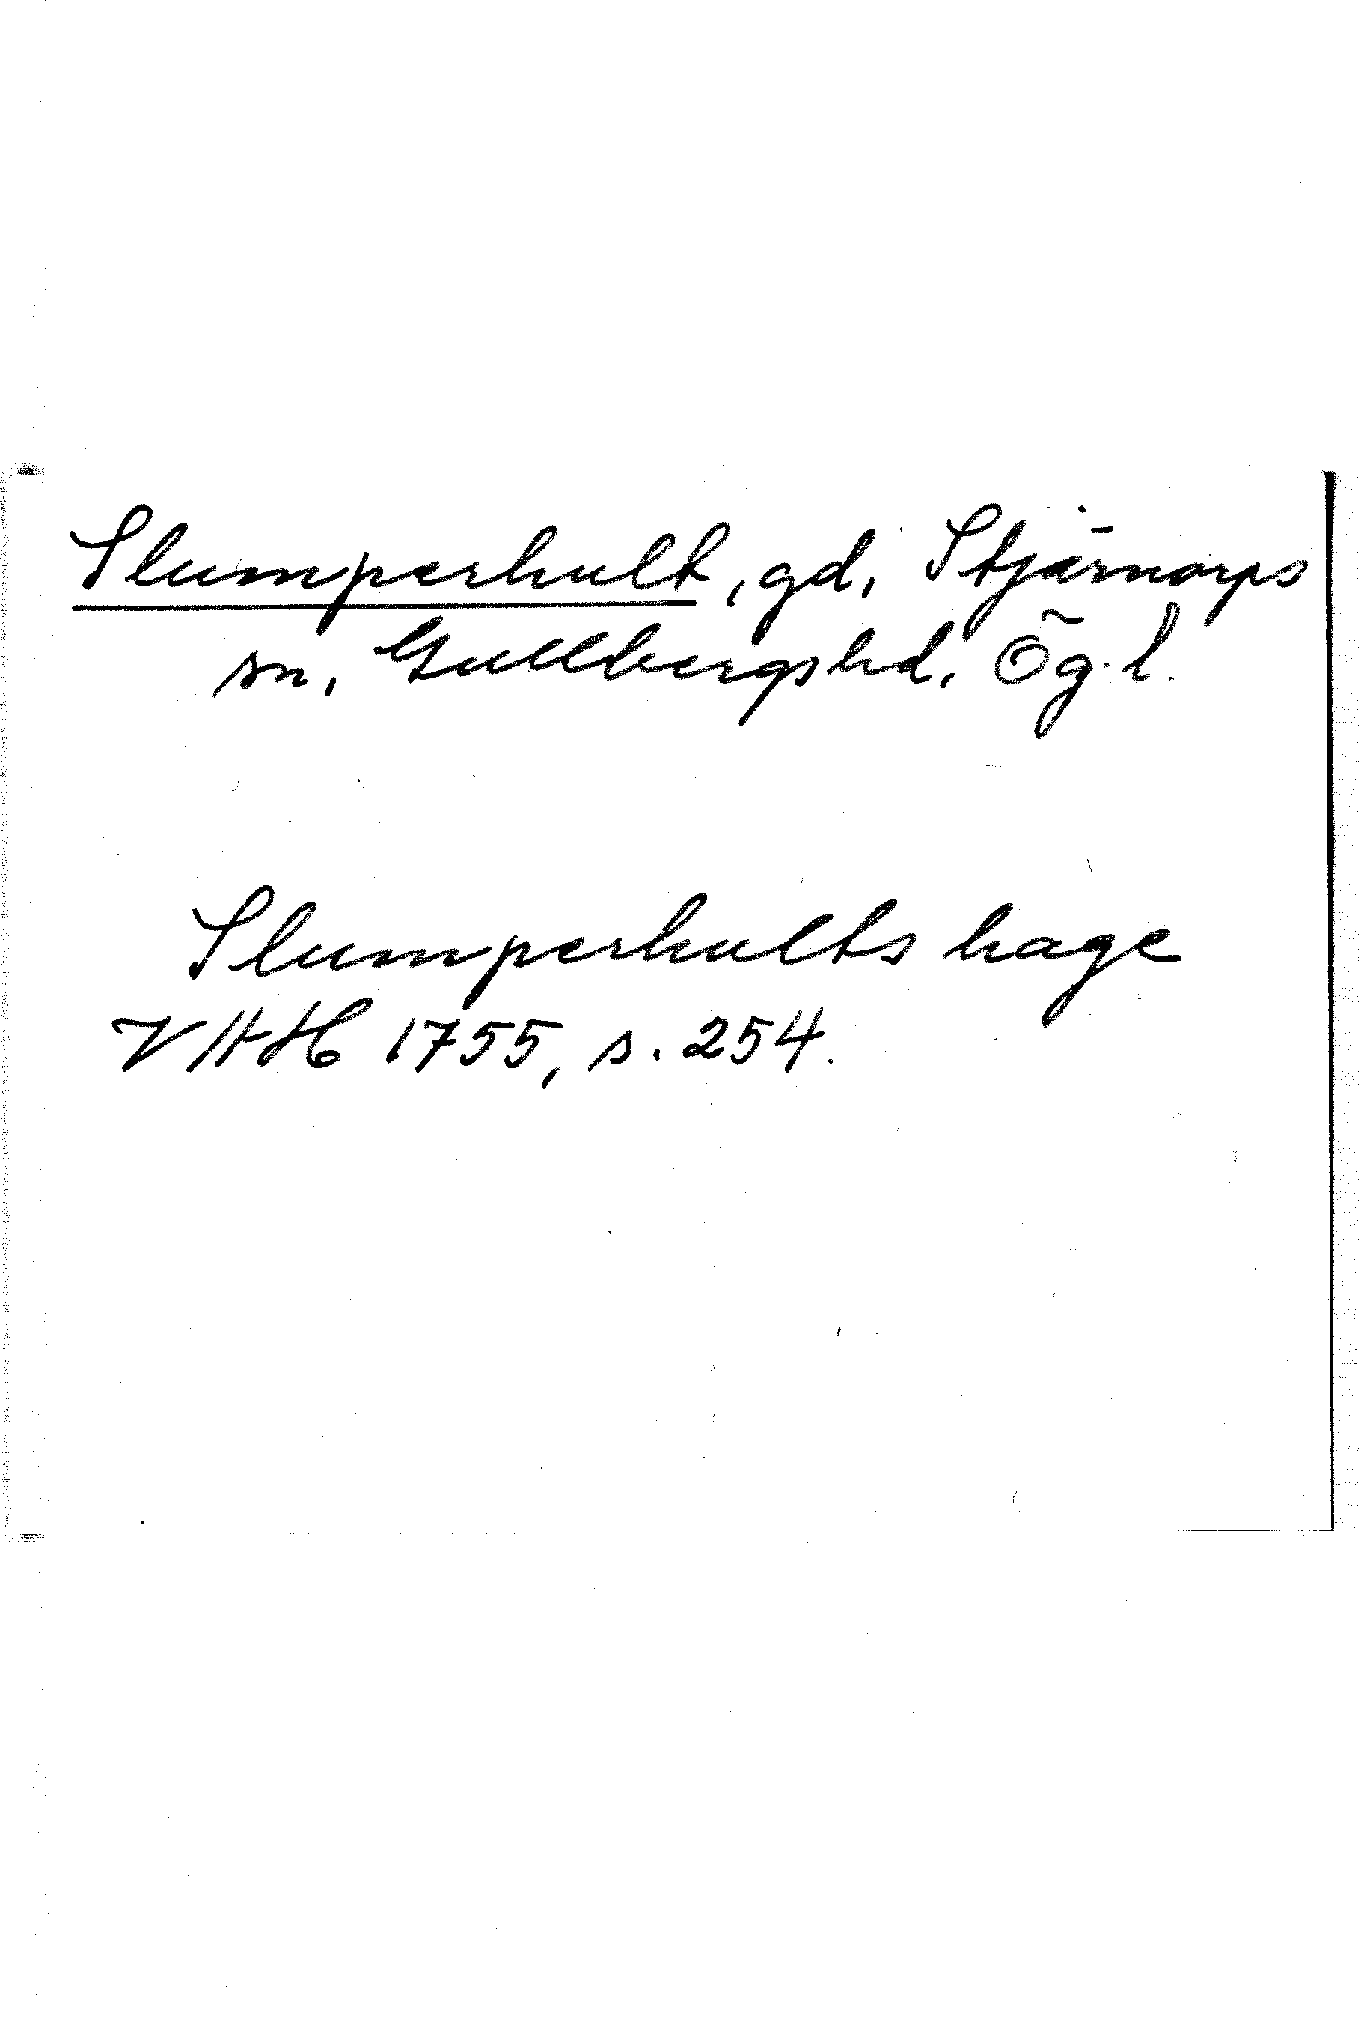 Slumperhult, gd, Stjärnorps
sn, Gullbergs hd, Ög. l.
Slumperhults hage
VHH 1755, s. 254.